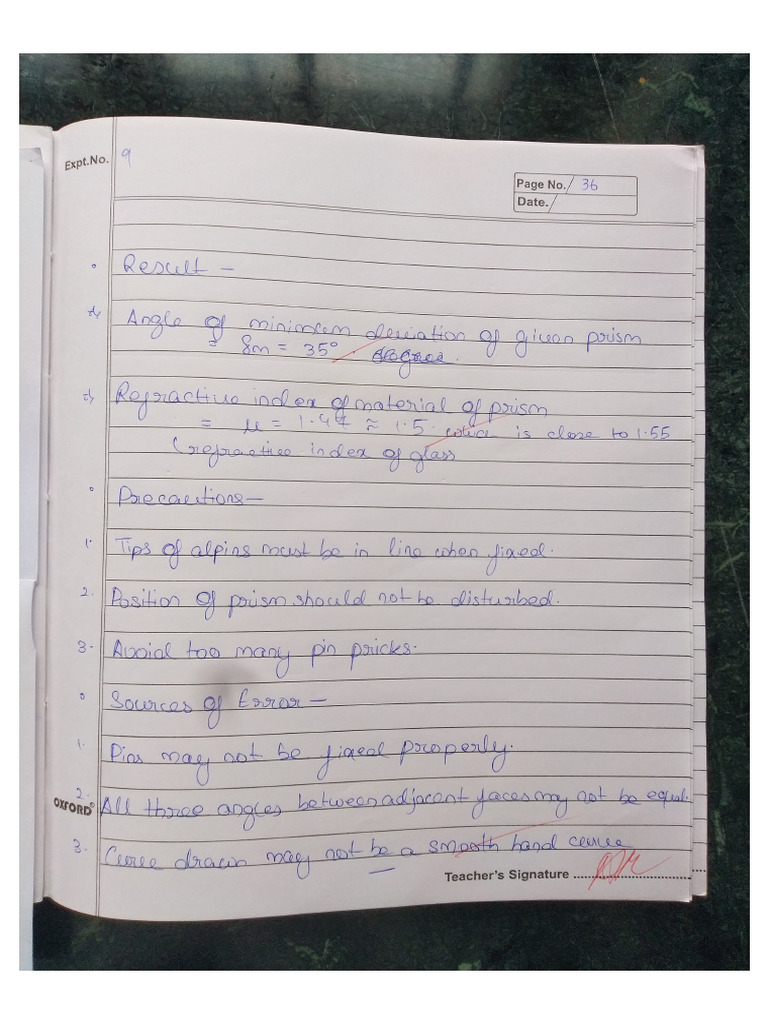 Expt.No. 9
Page No. 36
Date.
Result -
Angle of minimum deviation of given prism
= δm = 35°
Refractive index of material of prism
= μ = 1.47 ≈ 1.5 which is close to 1.55
(refractive index of glass
Precautions-
1. Tips of alpins must be in line when fixed.
2. Position of prism should not be disturbed.
3. Avoid too many pin pricks.
Sources of Error -
1. Pins may not be fixed properly.
2. All three angles between adjacent faces may not be equal.
OXFORD®
3. Curve drawn may not be a smooth hand curve
Teacher's Signature